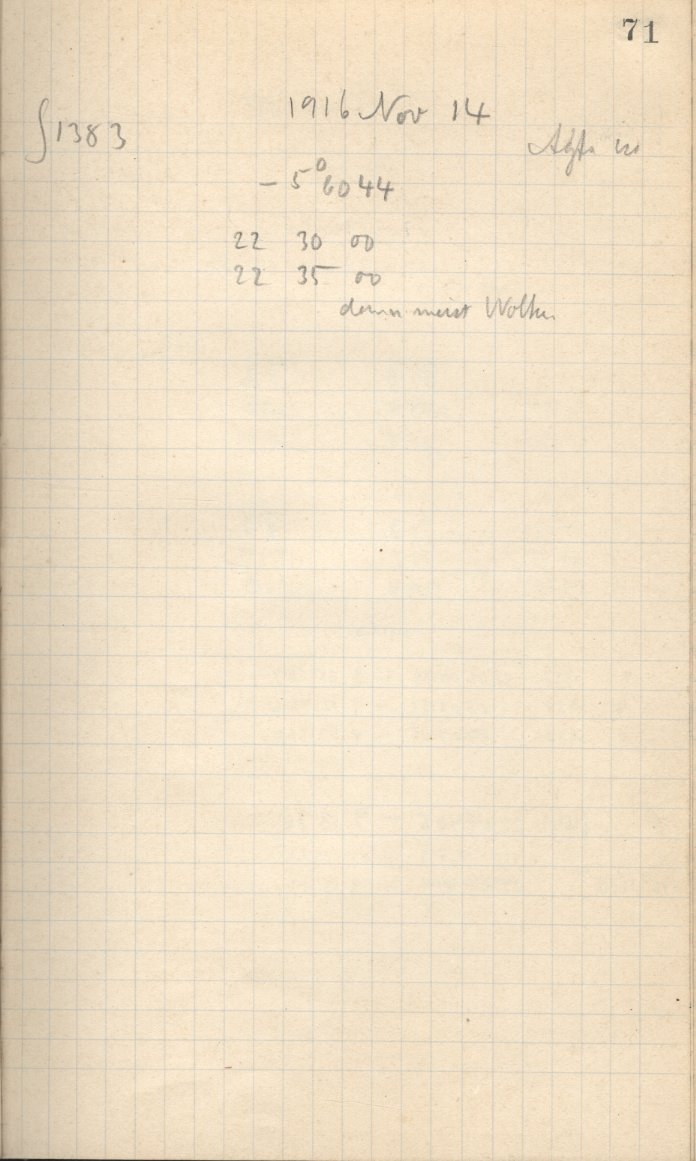 71
1916 Nov 14
∫1383
Agfa iso
- 5° 6044
22 30 00
22 35 00
dann meist Wolken